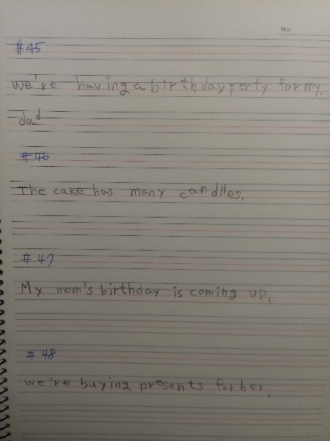 #45
We're having a birthday perty for my
dad
#46
The cake has many candlles.
#47
My mom's birthday is coming up.
#48
we're buying presents for her.